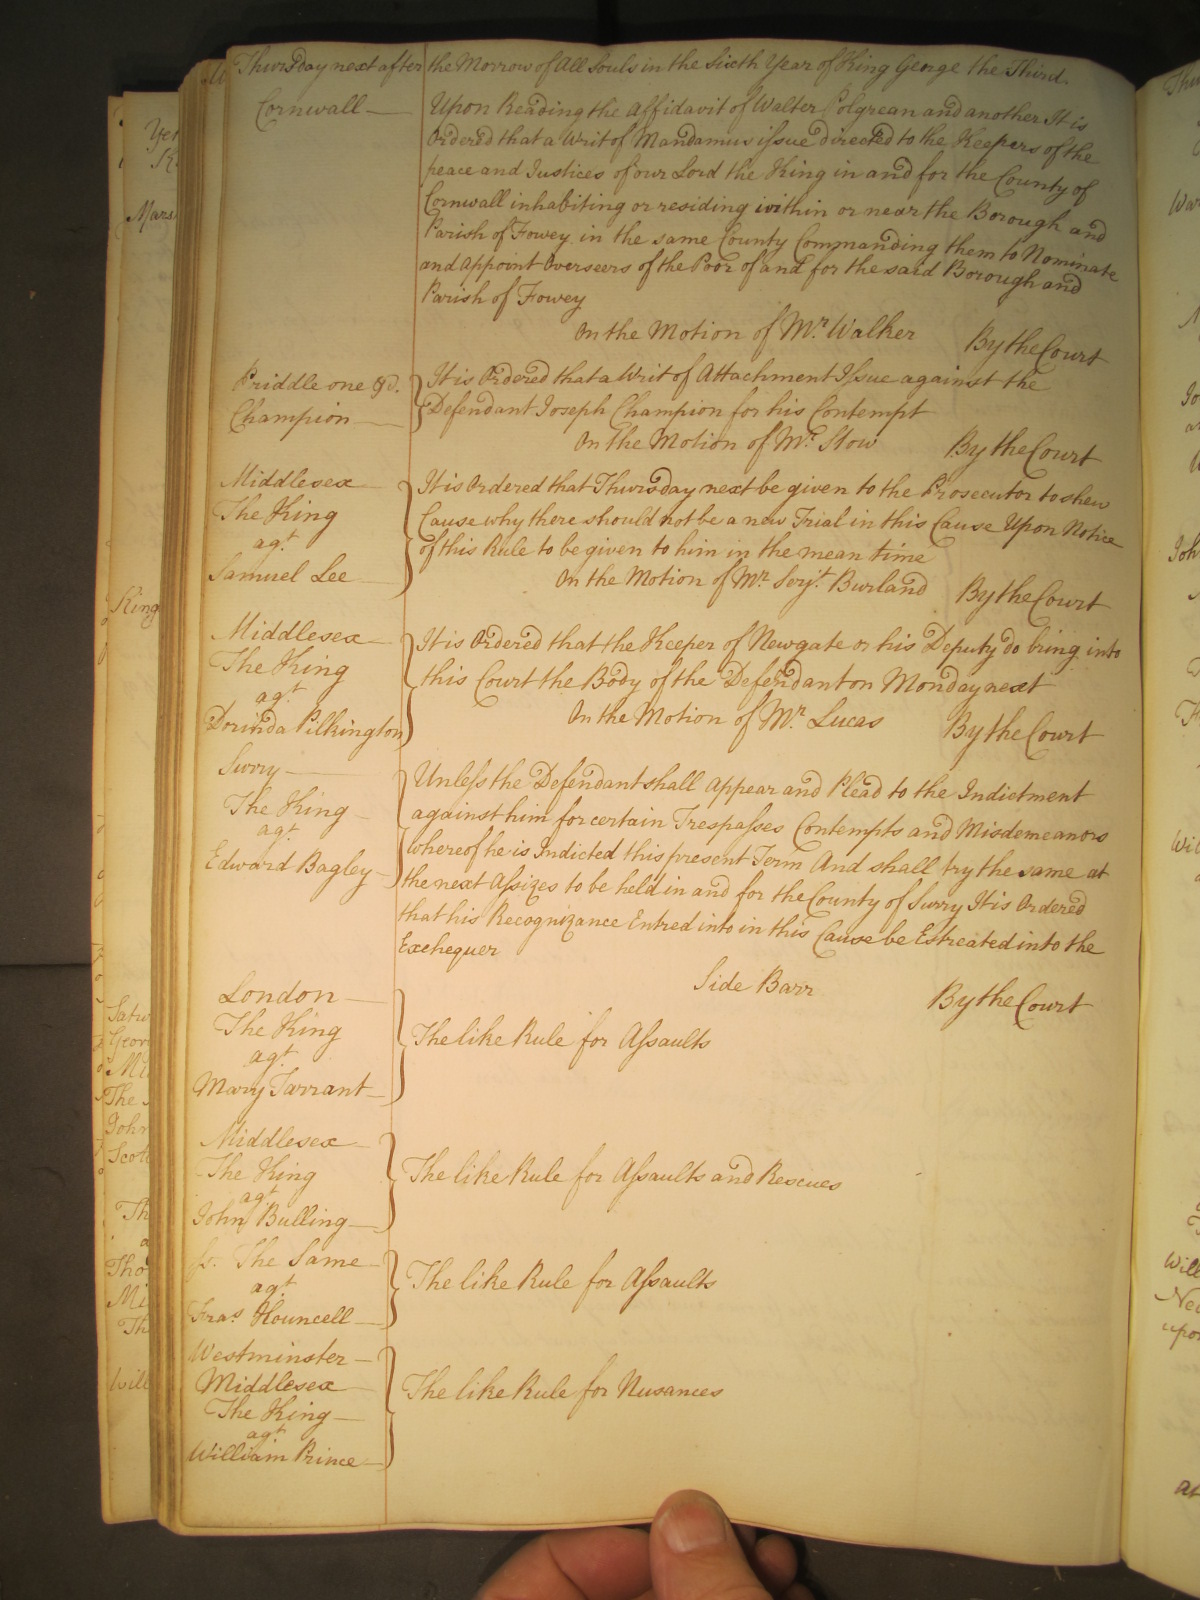 Thursday next after the Morrow of All Souls in the Sixth Year of King George the Third.
Cornwall
Upon Reading the Affidavit of Walter Polgrean and another It is
Ordered that a Writ of Mandamus issue directed to the Keepers of the
peace and Justices of our Lord the King in and for the County of
Cornwall inhabiting or residing within or near the Borough and
Parish of Fowey in the same County Commanding them to Nominate
and Appoint Overseers of the Poor of and for the said Borough and
Parish of Fowey
On the Motion of Mr. Walker By the Court
Priddle one &c.
Champion
It is Ordered that a Writ of Attachment Issue against the
Defendant Joseph Champion for his Contempt
On the Motion of Mr. Stow By the Court
Middlesex
The King
agt.
Samuel Lee
It is Ordered that Thursday next be given to the Prosecutor to shew
Cause why there should not be a new Trial in this Cause Upon Notice
of this Rule to be given to him in the mean time
On the Motion of Mr. Serjt. Burland By the Court
Middlesex
The King
agt
Dorinda Pilkington
It is Ordered that the Keeper of Newgate or his Deputy do bring into
this Court the Body of the Defendant on Monday next
On the Motion of Mr. Lucas By the Court
Surry
The King
agt.
Edward Bagley
Unless the Defendant shall Appear and Plead to the Indictment
against him for certain Trespasses Contempts and Misdemeanors
whereof he is Indicted this present Term And shall try the same at
the next Assizes to be held in and for the County of Surry It is Ordered
that his Recognizance Entred into in this Cause be Estreated into the
Exchequer
Side Barr By the Court
London
The King
agt.
Mary Tarrant
The like Rule for Assaults
Middlesex
The King
agt.
John Bulling
The like Rule for Assaults and Rescues
ss. The Same
agt.
Fras. Houncell
The like Rule for Assaults
Westminster
Middlesex
The King
agt.
William Prince
The like Rule for Nusances